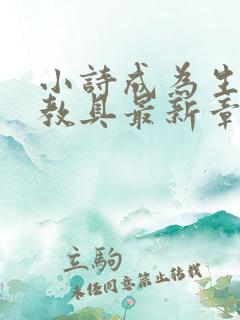 小詩成為生
教具最新章
立駒
未任同意禁止转载